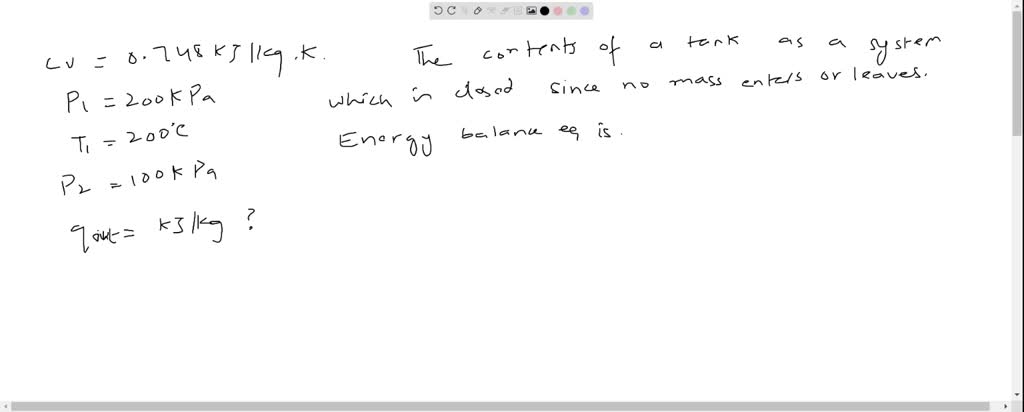 cv = 0.748 kJ/kg.K.
P1 = 200kPa
T1 = 200°C
P2 = 100kPa
qout = kJ/kg ?
The contents of a tank as a system
which is closed since no mass enters or leaves.
Energy balance eq is.